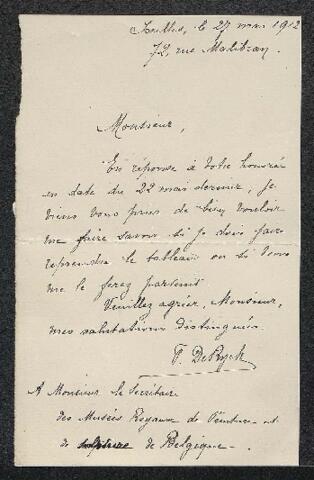 Ixelles, le 27 mai 1912
72, rue Malibran
Monsieur,
En réponse à votre honoré
en date du 22 mai dernier, je
viens vous prier de bien vouloir
me faire savoir si je dois faire
reprendre le tableau ou si vous
me le ferez parvenir
Veuillez agréer, Monsieur,
mes salutations distinguées.
F. De Ryck
A Monsieur le Secrétaire
des Musées Royaux de Peinture et
de sculpture de Belgique.